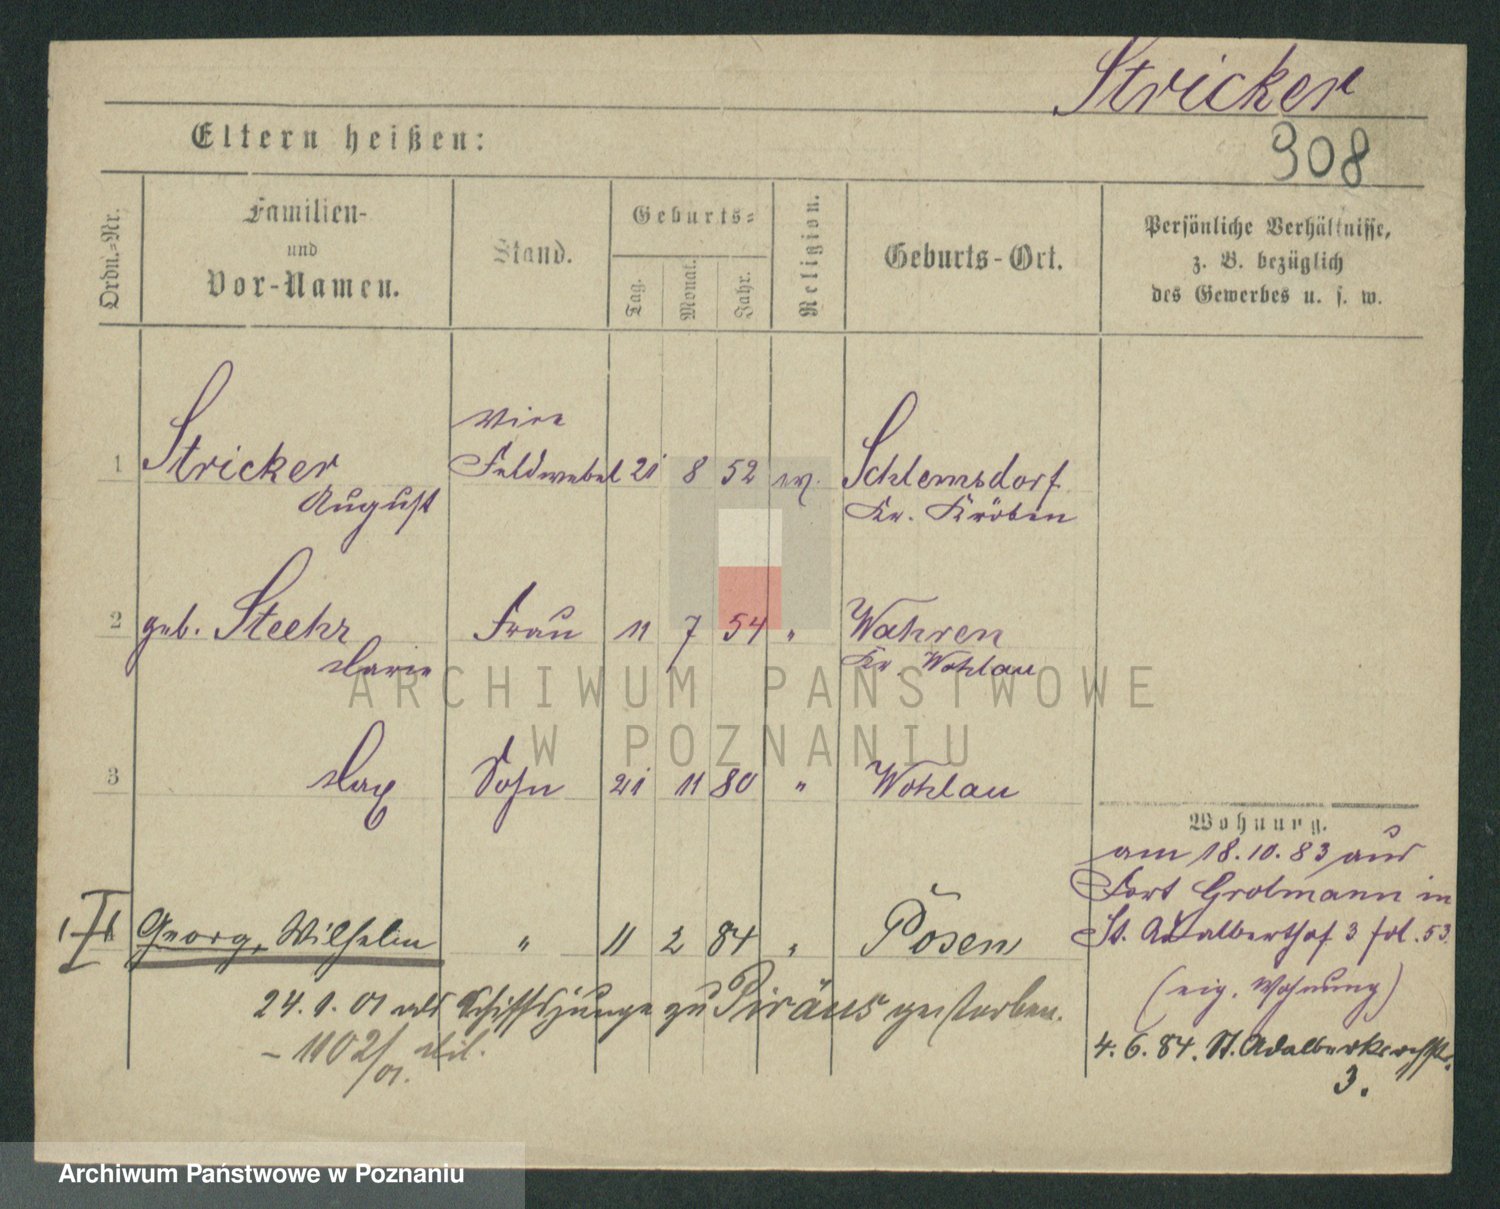 Stricker
908
Eltern heißen:
Ordn.-Nr.
Familien-
und
Vor-Namen.
Stand.
Geburts=
Tag.
Monat.
Jahr.
Religion.
Geburts-Ort.
Persönliche Verhältnisse,
z. B. bezüglich
des Gewerbes u. s. w.
Vice
1 Stricker Feldwebel 21 8 52 ev. Schlemsdorf
August Kr. Kröben
2 geb. Steehr Frau 11 7 54 " Wahren
Marie Kr. Wohlau
3 Max Sohn 21 11 80 " Wohlau
Wohnung.
am 18.10.83 aus
Fort Grolmann in
St. Adalberthof 3 fol. 53.
(eig. Wohnung)
4. 6. 84. St. Adalbert
3.
Georg, Wilhelm " 11 2 84 " Posen
24. 1. 01 als Schiffsjunge zu Piräus gestorben.
- 1102/01. Mil.
ARCHIWUM PAŃSTWOWE
W POZNANIU
Archiwum Państwowe w Poznaniu